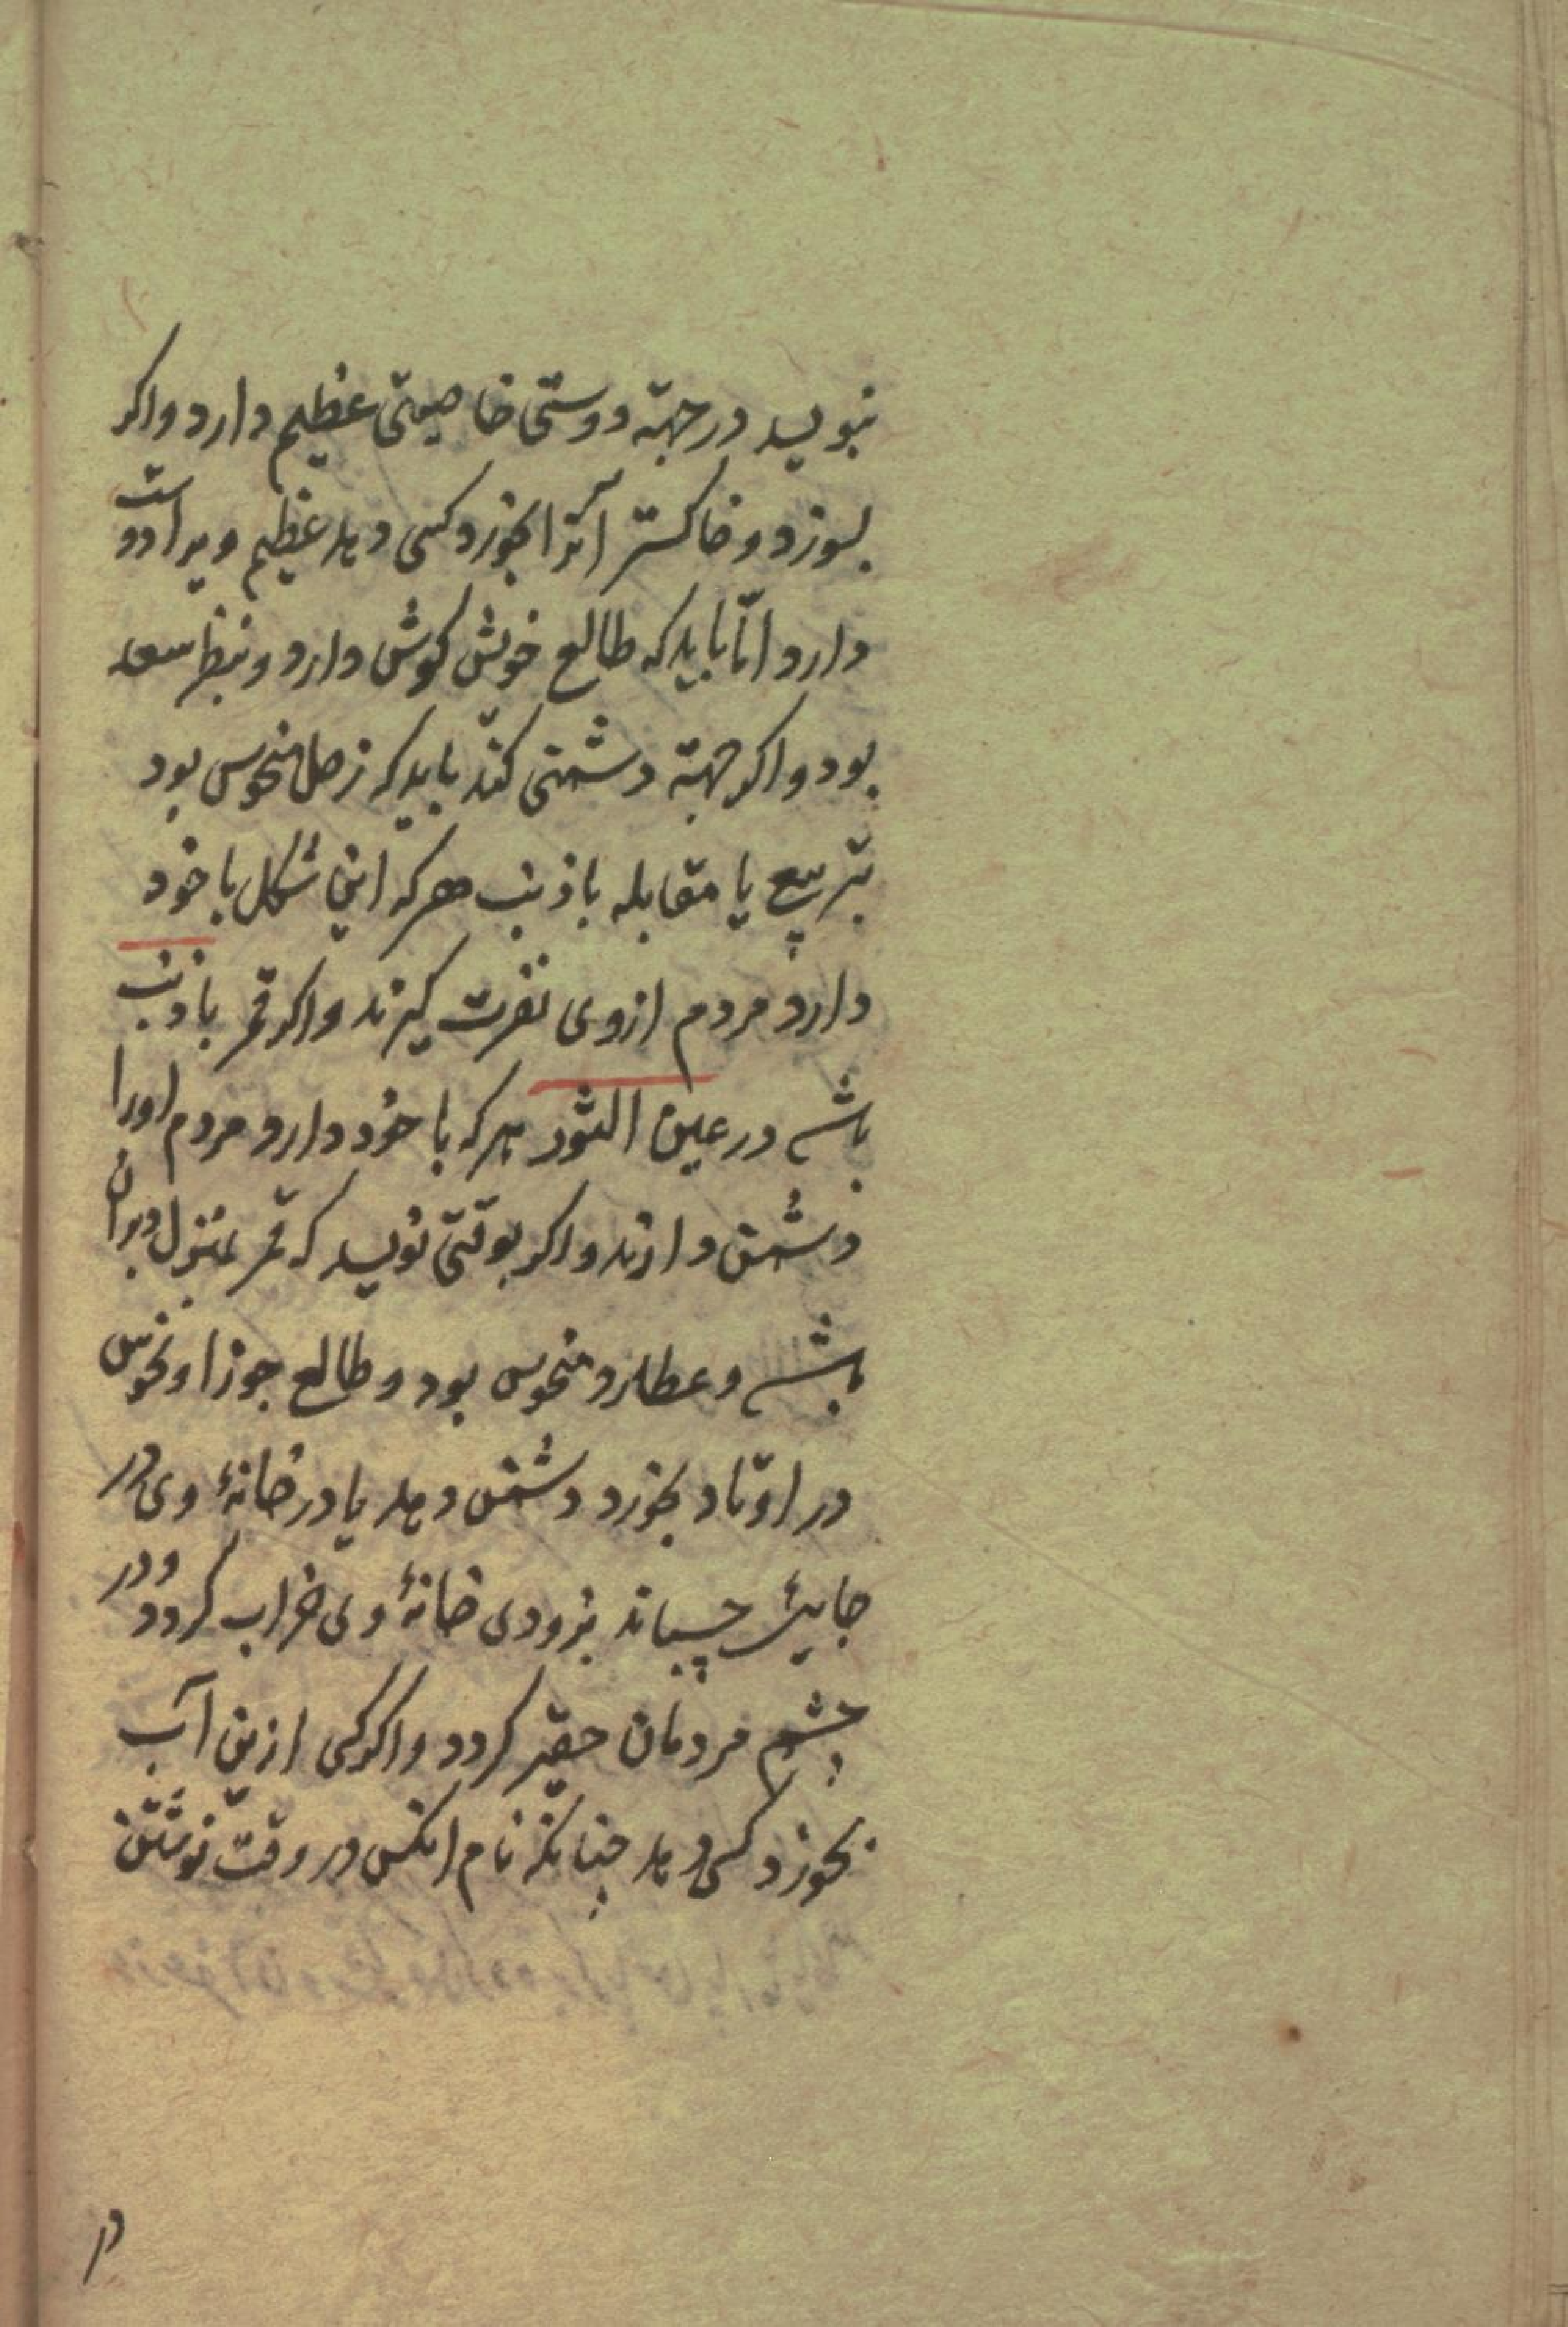 نبویسد در جهة دوستی خاصیتی عظیم دارد واکر
بسوزد و خاکستر آنرا بخورد کسی دهد عظیم ویرا دوست
دارد امّا باید که طالع خویش کوش دارد و بنظر سعد
بود واکر جهة دشمنی کند باید که زحل منحوس بود
بتربیع یا مقابله با ذنب هرکه این شکل با خود
دارد مردم ازوی نفرت کیرند واکر قمر با ذنب
باشد در عین الثور هرکه با خود دارد مردم اورا
دشمن دارند واکر بوقتی نویسد که قمر بمنزل دبران
باشد و عطارد منحوس بود و طالع جوزا و نحوس
در اوتاد بخورد دشمن دهد یا در خانهٔ وی در
جایی چسباند بزودی خانهٔ وی خراب کردد و در
چشم مردمان حقیر کردد واکر کسی ازین آب
بخورد کسی دهد چنانکه نام انکس در وقت نوشتن
در